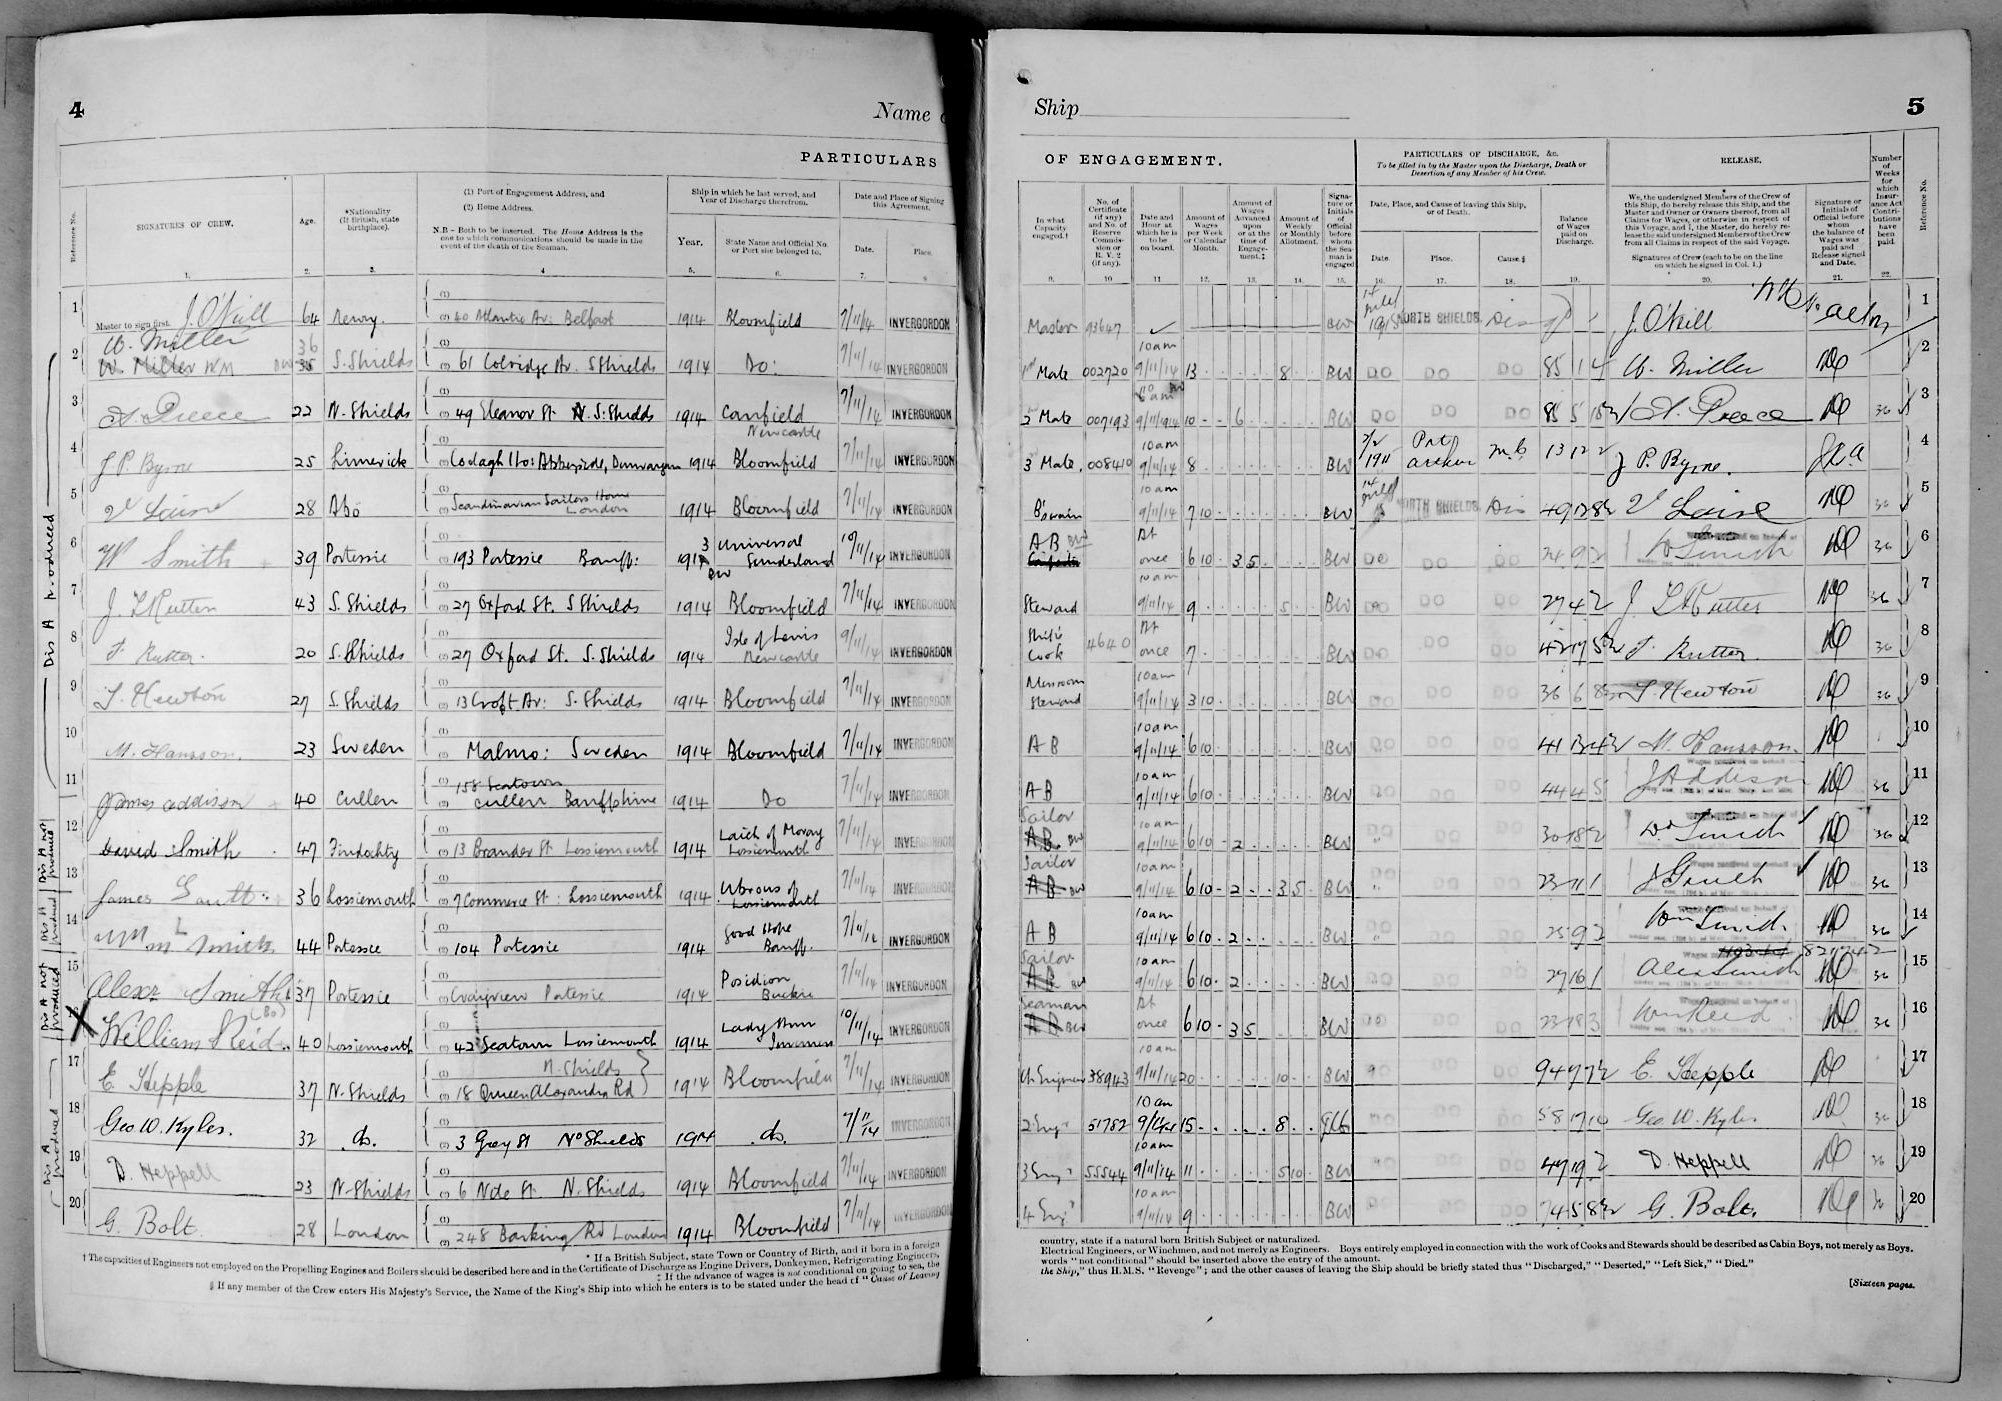 4
Name
PARTICULARS
Reference No.
SIGNATURES OF CREW.
Age.
*Nationality
(If British, state
birthplace).
(1) Port of Engagement Address, and
(2) Home Address.
N.B - Both to be inserted. The Home Address is the
one to which communications should be made in the
event of the death of the Seaman.
Ship in which he last served, and
Year of Discharge therefrom.
Year.
State Name and Official No.
or Port she belonged to.
Date and Place of Signing
this Agreement.
Date.
Place.
1. 2. 3. 4 5. 6. 7. 8
1 Master to sign first. J. O'Neill 64 Newry 40 Atlantic Av: Belfast 1914 Bloomfield 7/11/14 INVERGORDON
2 W. Miller 36
W. Miller WM BW 35 S. Shields 61 Colridge Av. S Shields 1914 Do: 7/11/14 INVERGORDON
3 A. Preece 22 N. Shields 49 Eleanor St N. S. Shields 1914 Canfield Newcastle 7/11/14 INVERGORDON
4 J P. Byrne 25 Limerick Dunvargan 1914 Bloomfield 7/11/14 INVERGORDON
5 28 Abo Scandinavian Sailors Home London 1914 Bloomfield 7/11/14 INVERGORDON
6 W Smith 39 Portessie 193 Portessie Banff: 1914 3 BW Universal Sunderland 10/11/14 INVERGORDON
7 J. L Rutter 43 S. Shields 27 Oxford St. S Shields 1914 Bloomfield 7/11/14 INVERGORDON
8 F. Rutter. 20 S. Shields 27 Oxford St. S. Shields 1914 Isle of Lewis Newcastle 9/11/14 INVERGORDON
9 T. Hewton 27 S. Shields 13 Croft Av: S. Shields 1914 Bloomfield 7/11/14 INVERGORDON
10 M. Hansson. 23 Sweden Malmo: Sweden 1914 Bloomfield 7/11/14 INVERGORDON
11 James Addison 40 Cullen 158 Seatown Cullen Banffshire 1914 Do 7/11/14 INVERGORDON
12 David Smith 47 Findochty 13 Brander St Lossiemouth 1914 Laich of Moray Lossiemouth 7/11/14 INVERGORDON
13 James Gault 36 Lossiemouth 7 Commerce St: Lossiemouth 1914 Lossiemouth 7/11/14 INVERGORDON
14 Wm Smith 44 Portessie 104 Portessie 1914 Good Hope Banff. 7/11/14 INVERGORDON
15 Alexr Smith 37 Portessie Craigview Portessie 1914 Posidion Buckie 7/11/14 INVERGORDON
16 William Reid 40 Lossiemouth 42 Seatown Lossiemouth 1914 Lady Ann Inverness 10/11/14 INVERGORDON
17 E. Hepple 37 N. Shields N. Shields 18 Queen Alexandra Rd 1914 Bloomfield 7/11/14 INVERGORDON
18 Geo W. Kyles. 32 do. 3 Grey St No Shields 1914 do. 7/11/14 INVERGORDON
19 D. Heppell 23 N. Shields 6 Nile St N. Shields 1914 Bloomfield 7/11/14 INVERGORDON
20 G. Bolt. 28 London 248 Barking Rd London 1914 Bloomfield 7/11/14 INVERGORDON
Dis A produced
Dis A not produced
Dis A produced
Dis A not produced
Dis A produced
* If a British Subject, state Town or Country of Birth, and if born in a foreign
† The capacities of Engineers not employed on the Propelling Engines and Boilers should be described here and in the Certificate of Discharge as Engine Drivers, Donkeymen, Refrigerating Engineers,
‡ If the advance of wages is not conditional on going to sea, the
§ If any member of the Crew enters His Majesty's Service, the Name of the King's Ship into which he enters is to be stated under the head of "Cause of Leaving
Ship
5
OF ENGAGEMENT.
PARTICULARS OF DISCHARGE, &c.
To be filled in by the Master upon the Discharge, Death or
Desertion of any Member of his Crew.
RELEASE.
Number
of
Weeks
for
which
Insur-
ance Act
Contri-
butions
have
been
paid.
Reference No.
In what
Capacity
engaged.†
No. of
Certificate
(if any)
and No. of
Reserve
Commis-
sion or
R. V. 2
(if any).
Date and
Hour at
which he is
to be
on board.
Amount of
Wages
per Week
or Calendar
Month.
Amount of
Wages
Advanced
upon
or at the
time of
Engage-
ment.‡
Amount of
Weekly
or Monthly
Allotment.
Signa-
ture or
Initials
of
Official
before
whom
the Sea-
man is
engaged
Date, Place, and Cause of leaving this Ship,
or of Death.
Date.
Place.
Cause.§
Balance
of Wages
paid on
Discharge.
We, the undersigned Members of the Crew of
this Ship, do hereby release this Ship, and the
Master and Owner or Owners thereof, from all
Claims for Wages, or otherwise in respect of
this Voyage, and I, the Master, do hereby re-
lease the said undersigned Members of the Crew
from all Claims in respect of the said Voyage.
Signatures of Crew (each to be on the line
on which he signed in Col. 1.)
Signature or
Initials of
Official before
whom
the balance of
Wages was
paid and
Release signed
and Date.
9. 10 11 12. 13. 14. 15. 16. 17. 18. 19. 20. 21. 22.
Master 93647 BW NORTH SHIELDS. J. O'Neill 1
1st Mate 002720 10am 9/11/14 13 8 BW DO DO DO 85 1 4 W. Miller 2
2 Mate 007193 9/11/1914 10 6 BW DO DO DO A. Preece 36 3
3 Mate. 008410 10am 9/11/14 8 BW Port Arthur 13 12 2 J P. Byrne. 4
B'swain 10am 9/11/14 7 10 BW NORTH SHIELDS. Dis 36 5
A B BW At once 6 10 3 5 BW DO DO DO 24 9 2 W Smith 36 6
Steward 10am 9/11/14 9 5 BW DO DO DO 27 4 2 J L Rutter 36 7
Ship's Cook 4640 At once 7 BW DO DO DO F. Rutter. 36 8
Messroom Steward 10am 9/11/14 3 10 BW DO DO DO T. Hewton 36 9
A B 10am 9/11/14 6 10 BW DO DO DO M. Hansson. 10
A B 10am 9/11/14 6 10 BW DO DO 44 4 5 J Addison 36 11
Sailor A B BW 10am 9/11/14 6 10 2 BW DO DO 30 18 2 Dd Smith 36 12
Sailor A B BW 10am 9/11/14 6 10 2 3 5 BW DO DO 23 11 1 J Gault 36 13
A B 10am 9/11/14 6 10 2 BW DO DO 25 9 2 Wm Smith 36 14
Sailor A B BW 10am 9/11/14 6 10 2 BW DO DO 27 16 1 Alex Smith 36 15
Seaman A B BW At once 6 10 3 5 BW DO DO DO 23 18 3 Wm Reid 36 16
Ch Engineer 38943 10am 9/11/14 20 10 BW DO DO E. Hepple 17
2 Engr 51782 10am 9/11/14 15 8 DO DO DO 58 17 10 Geo W. Kyles 36 18
3 Engr 55544 10am 9/11/14 11 5 10 BW DO DO 47 19 2 D. Heppell 36 19
4 Engr 10am 9/11/14 9 BW DO DO DO G. Bolt. 36 20
country, state if a natural born British Subject or naturalized.
Electrical Engineers, or Winchmen, and not merely as Engineers. Boys entirely employed in connection with the work of Cooks and Stewards should be described as Cabin Boys, not merely as Boys.
words "not conditional" should be inserted above the entry of the amount.
the Ship," thus H.M.S. "Revenge"; and the other causes of leaving the Ship should be briefly stated thus "Discharged," "Deserted," "Left Sick," "Died."
[Sixteen pages.